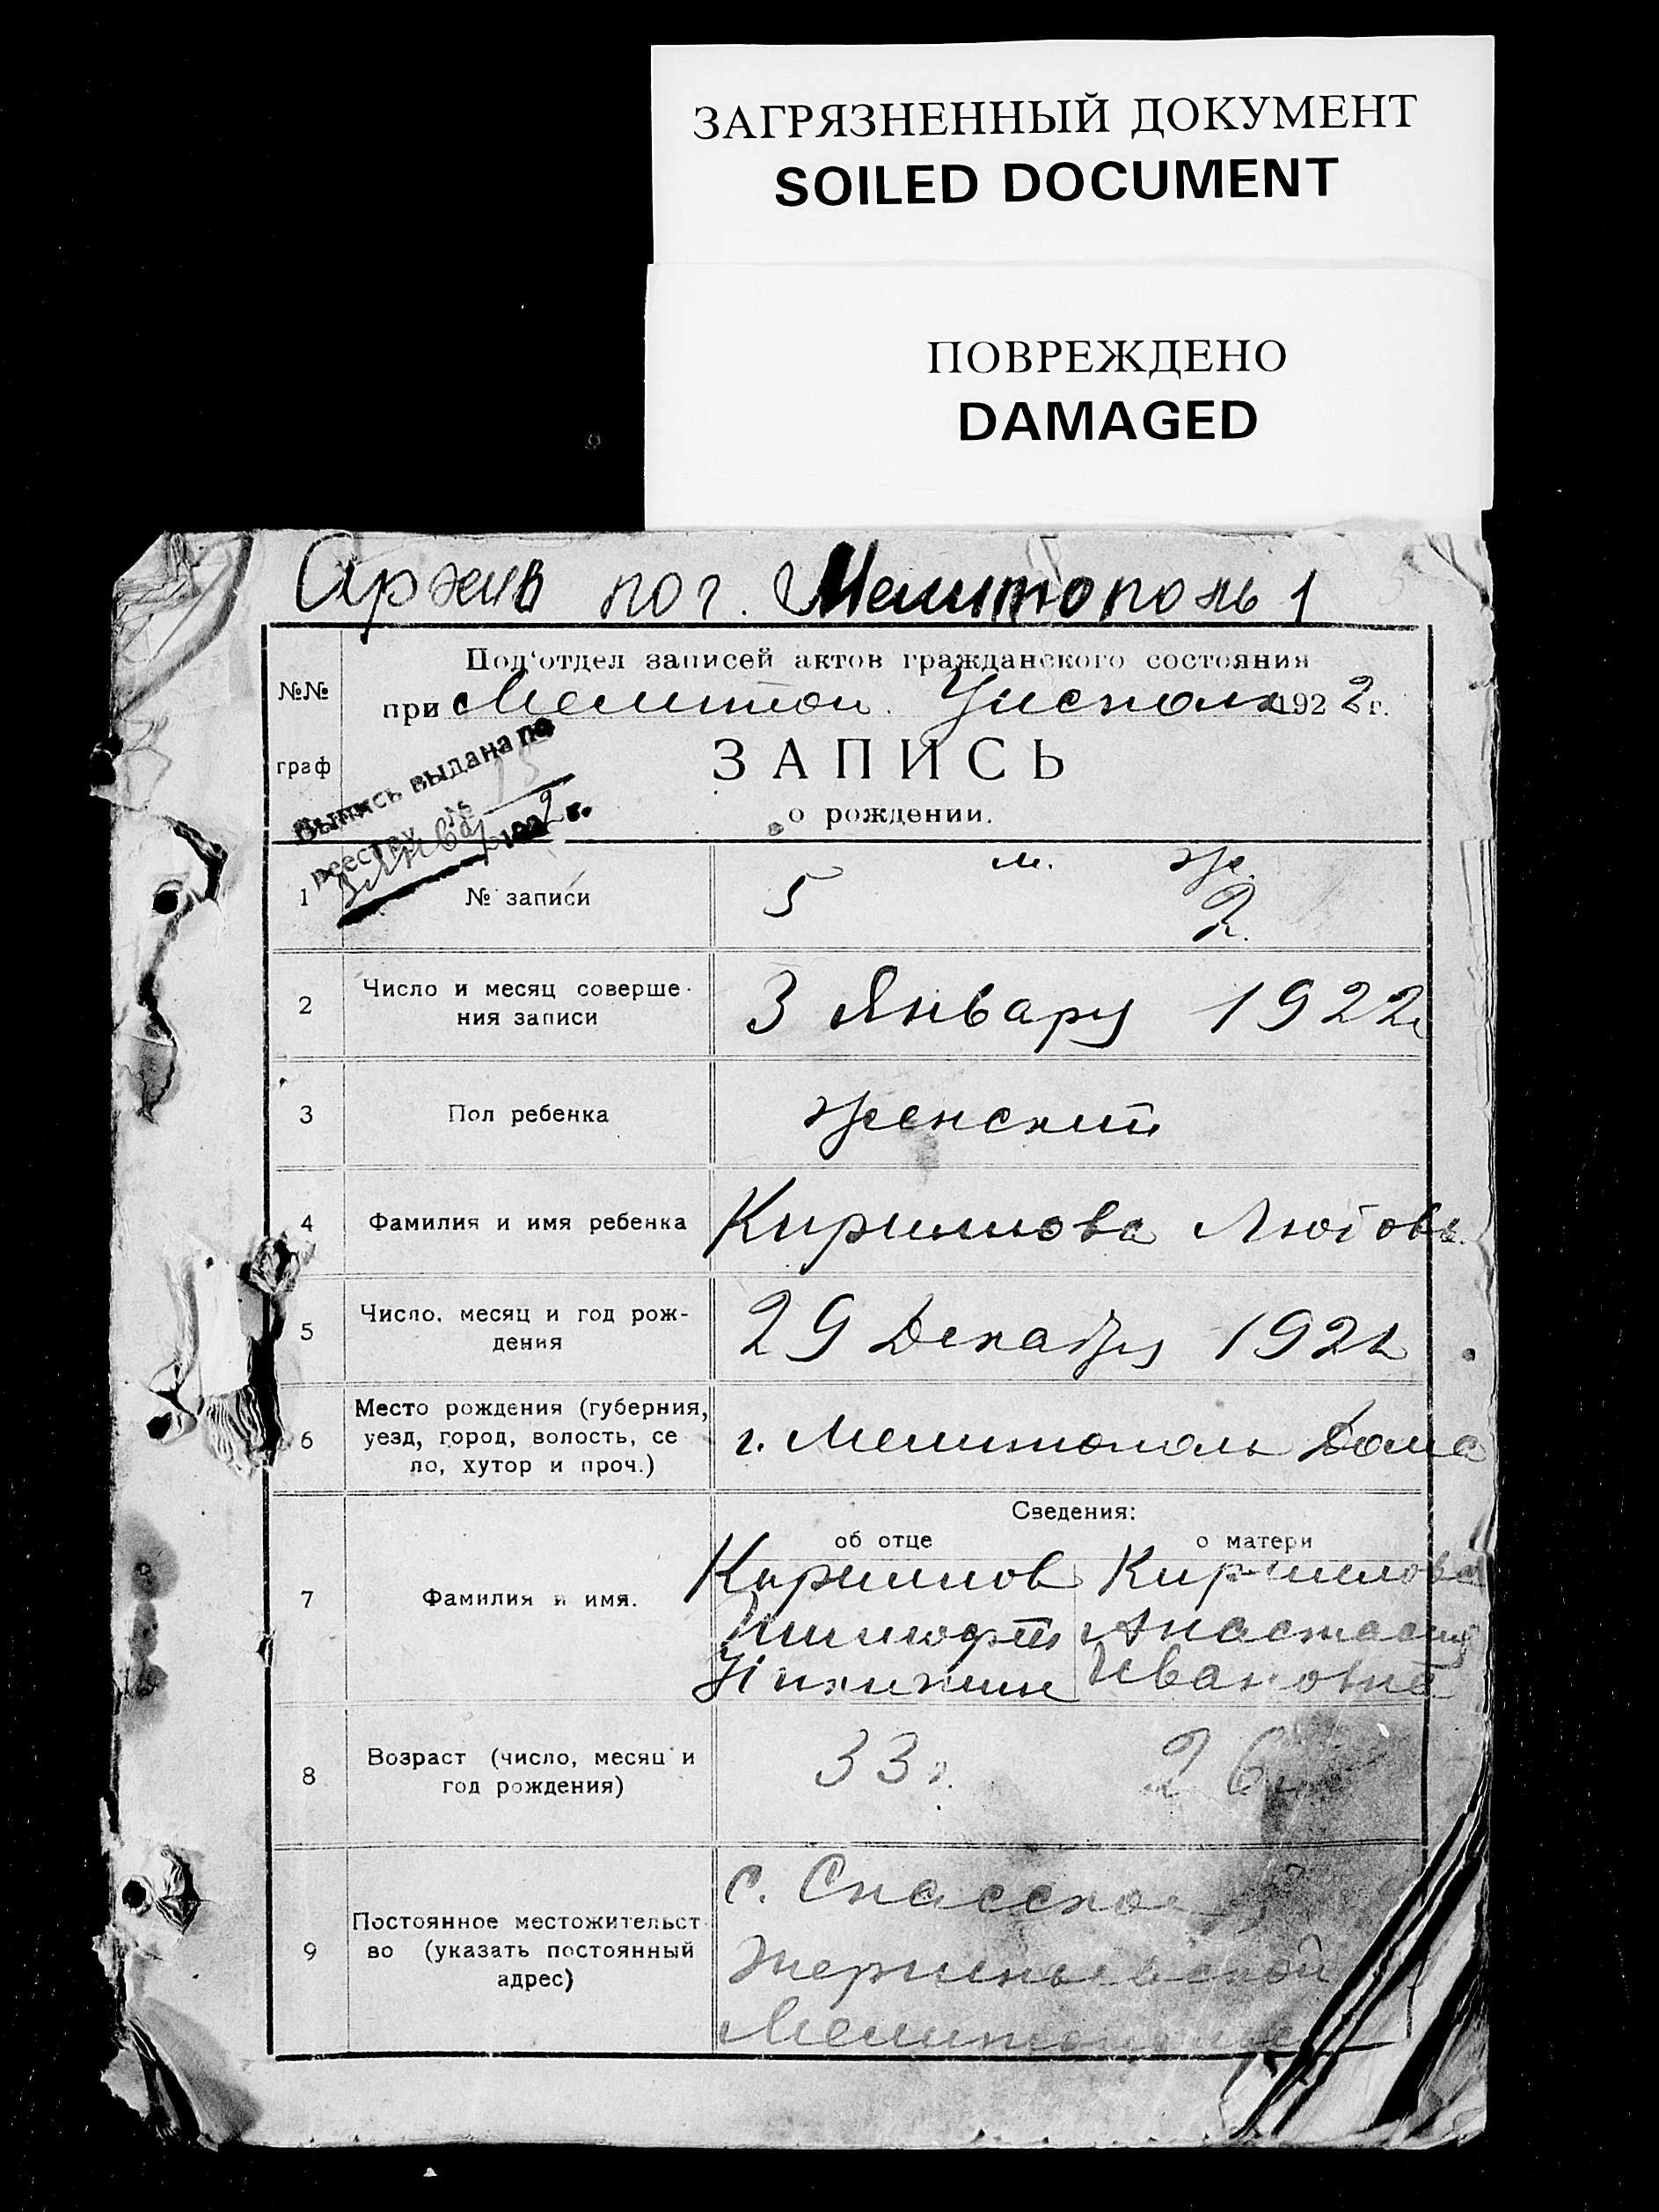 ЗАГРЯЗНЕННЫЙ ДОКУМЕНТ
SOILED DOCUMENT
ПОВРЕЖДЕНО
DAMAGED
Архив по г. Мелитополь 1
№№
граф
Под‘отдел записей актов гражданского состояния
при Мелитоп. Уисполк 1922 г.
ЗАПИСЬ
о рождении.
Выпись выдана по
реестру № 15
3 Января 1922 г.
1 № записи 5 м. ж. 2.
2 Число и месяц соверше-
ния записи
3 Январy 1922
3 Пол ребенка женский
4 Фамилия и имя ребенка Любовь
5 Число, месяц и год рож-
дения
29 Декабря 1921
6 Место рождения (губерния,
уезд, город, волость, се
ло, хутор и проч.)
г. Мелитополь Дома
7 Фамилия и имя.
Сведения:
об отце
о матери
Анастасия
Ивановна
8 Возраст (число, месяц и
год рождения)
33 г. 26
9 Постоянное местожительст
во (указать постоянный
адрес)
с. Спасское